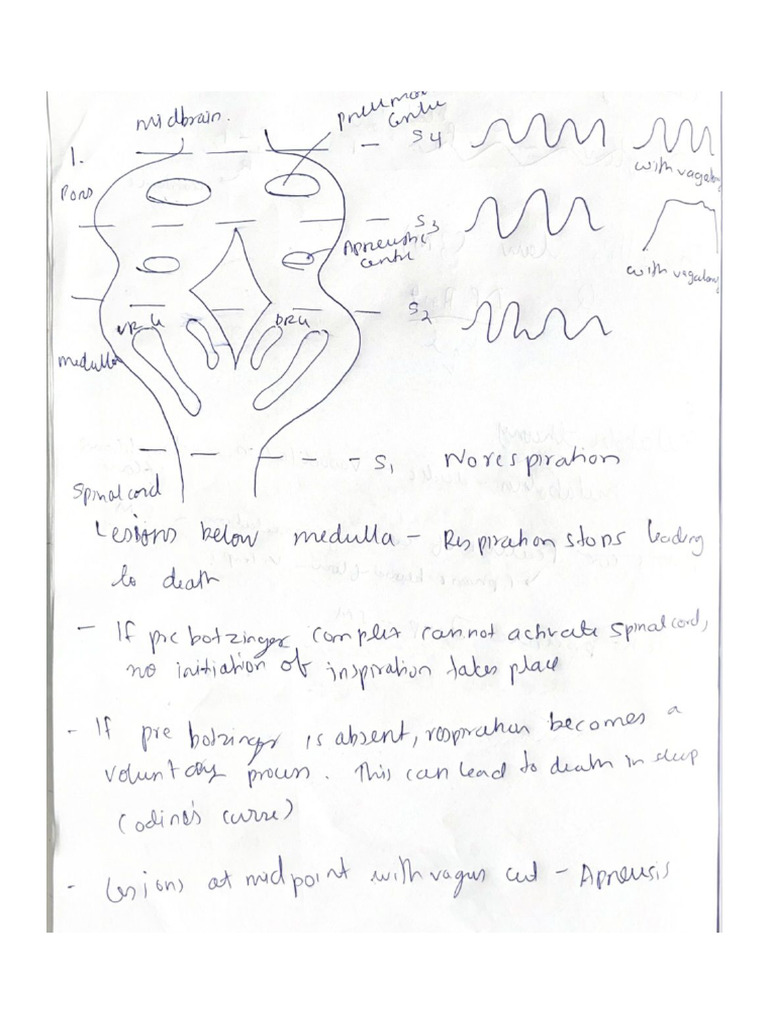 midbrain.
centre
1.
S4
with vagal
Pons
S3
Apneustic
centre
with vagal
S2
VRG
DRG
medulla
S1
No respiration
Spinal cord
Lesions below medulla - Respiration stops leading
to death
- If pre botzinger complex cannot activate spinal cord,
no initiation of inspiration takes place
- If pre botzinger is absent, respiration becomes a
voluntary process. This can lead to death in sleep
(odine's curse)
- Lesions at midpoint with vagus cut - Apneusis